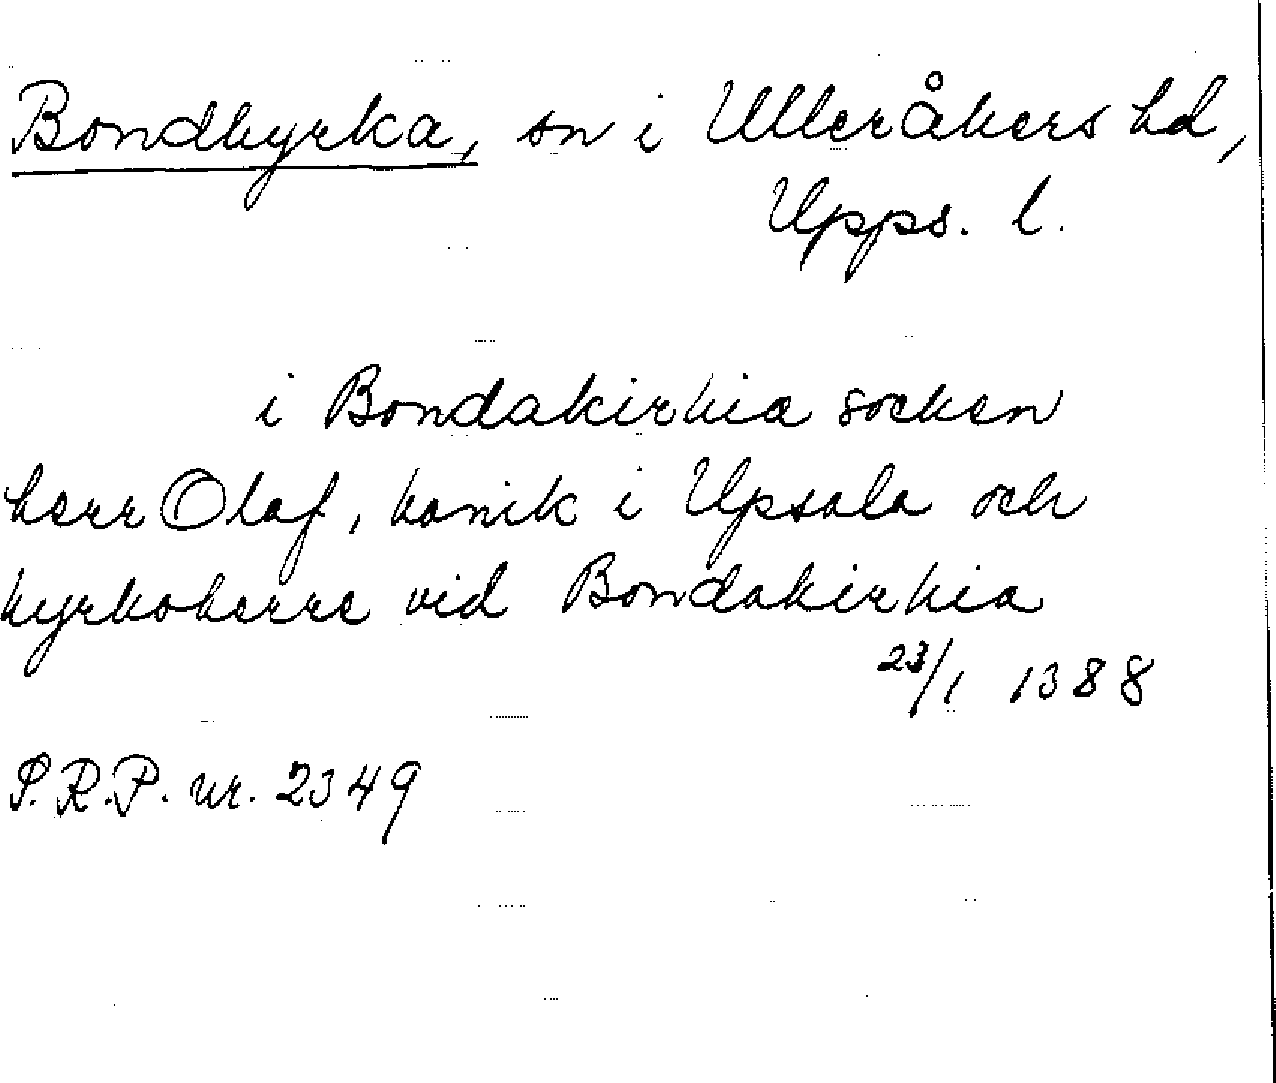 Bondkyrka, sn i Ulleråkers hd,
Upps. l.
i Bondakirkia socken
herr Olaf, kanik i Upsala och
kyrkoherre vid Bondakirkia
23/1 1388
S.R.P. nr. 2349